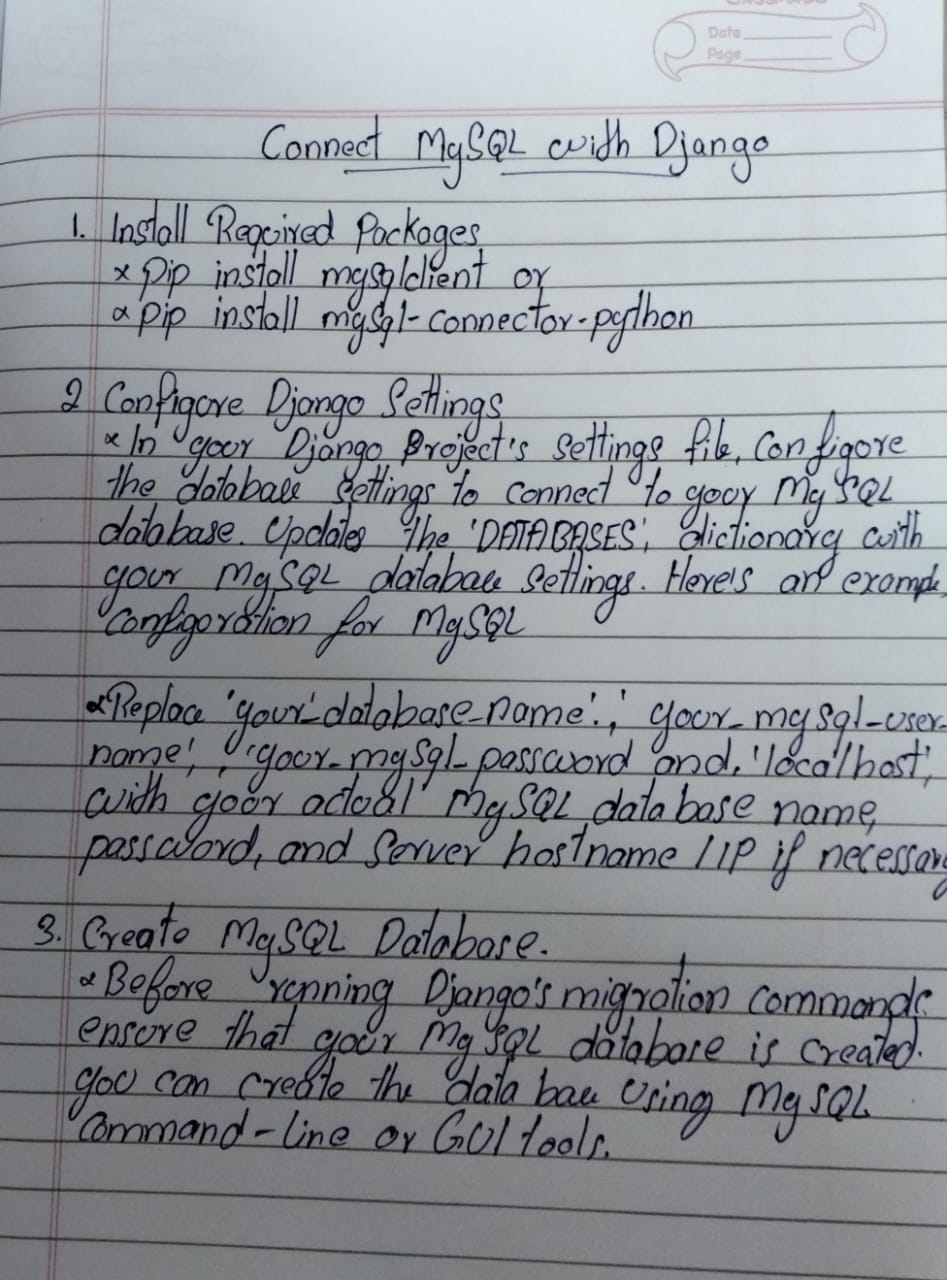 Date
Page
Connect MySQL with Django
1. Install Required Packages
x pip install mysqlclient or
x pip install mysql-connector-python
2 Configure Django Settings
x In your Django Project's settings file, configure
the database settings to connect to your MySQL
database. Updates the 'DATABASES', dictionary with
your MySQL database settings. Here's an example
configuration for MySQL
x Replace 'your-database-name', 'your-mysql-user-
name', 'your-mysql-password and, 'localhost',
with your actual MySQL database name,
password, and Server hostname / IP if necessary
3. Create MySQL Database.
x Before running Django's migration commands
ensure that your MySQL database is created.
you can create the data base using MySQL
Command-line or GUI tools.